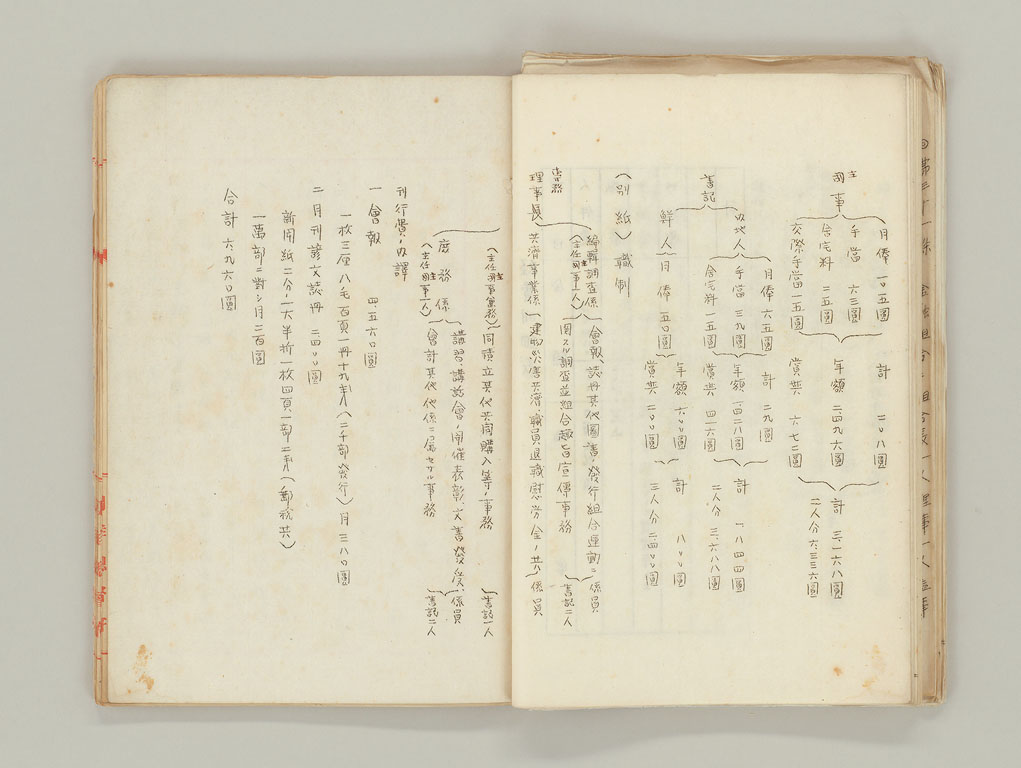 主事
月俸 一〇五圓
手當 六三圓
舎宅料 二五圓
交際手當 一五圓
計 二〇八圓
年額 二四九六圓
賞與 六七二圓
計 三、一六八圓
二人分 六、三三六圓
書記
内地人
月俸 六五圓
手當 三九圓
舎宅料 一五圓
計 一一九圓
年額 一四二八圓
賞與 四一六圓
計 一、八四四圓
二人分 三、六八八圓
鮮人
月俸 五〇圓
年額 六〇〇圓
賞與 二〇〇圓
計 八〇〇圓
三人分 二、四〇〇圓
(別紙)職制
常務
理事長
編輯調査係
(主任主事一人)
會報、誌册其他圖書ノ發行組合運動ニ
関スル調査並組合趣旨宣傳事務
係員
書記二人
共濟事業係
建物災害共濟、職員退職慰労金ノ共
係員
(主任主事兼務)
同積立其他共同購入等ノ事務
書記一人
庶務係
(主任主事一人)
講習講話會ノ開催表彰、文書發受、
會計其他他係ニ属セザル事務
係員
書記二人
刊行費ノ内譯
一 會報 四、五六〇圓
一枚三厘八毛百頁一册十九戔(二千部發行)月三八〇圓
二 月刊諺文誌册 二、四〇〇圓
新聞紙二分ノ一大半折一枚四頁一部二戔(郵税共)
一萬部ニ對シ月二百圓
合計 六、九六〇圓